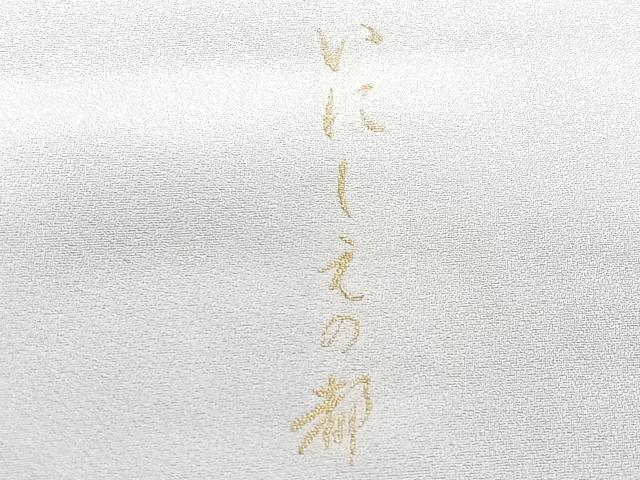 いにしえの都